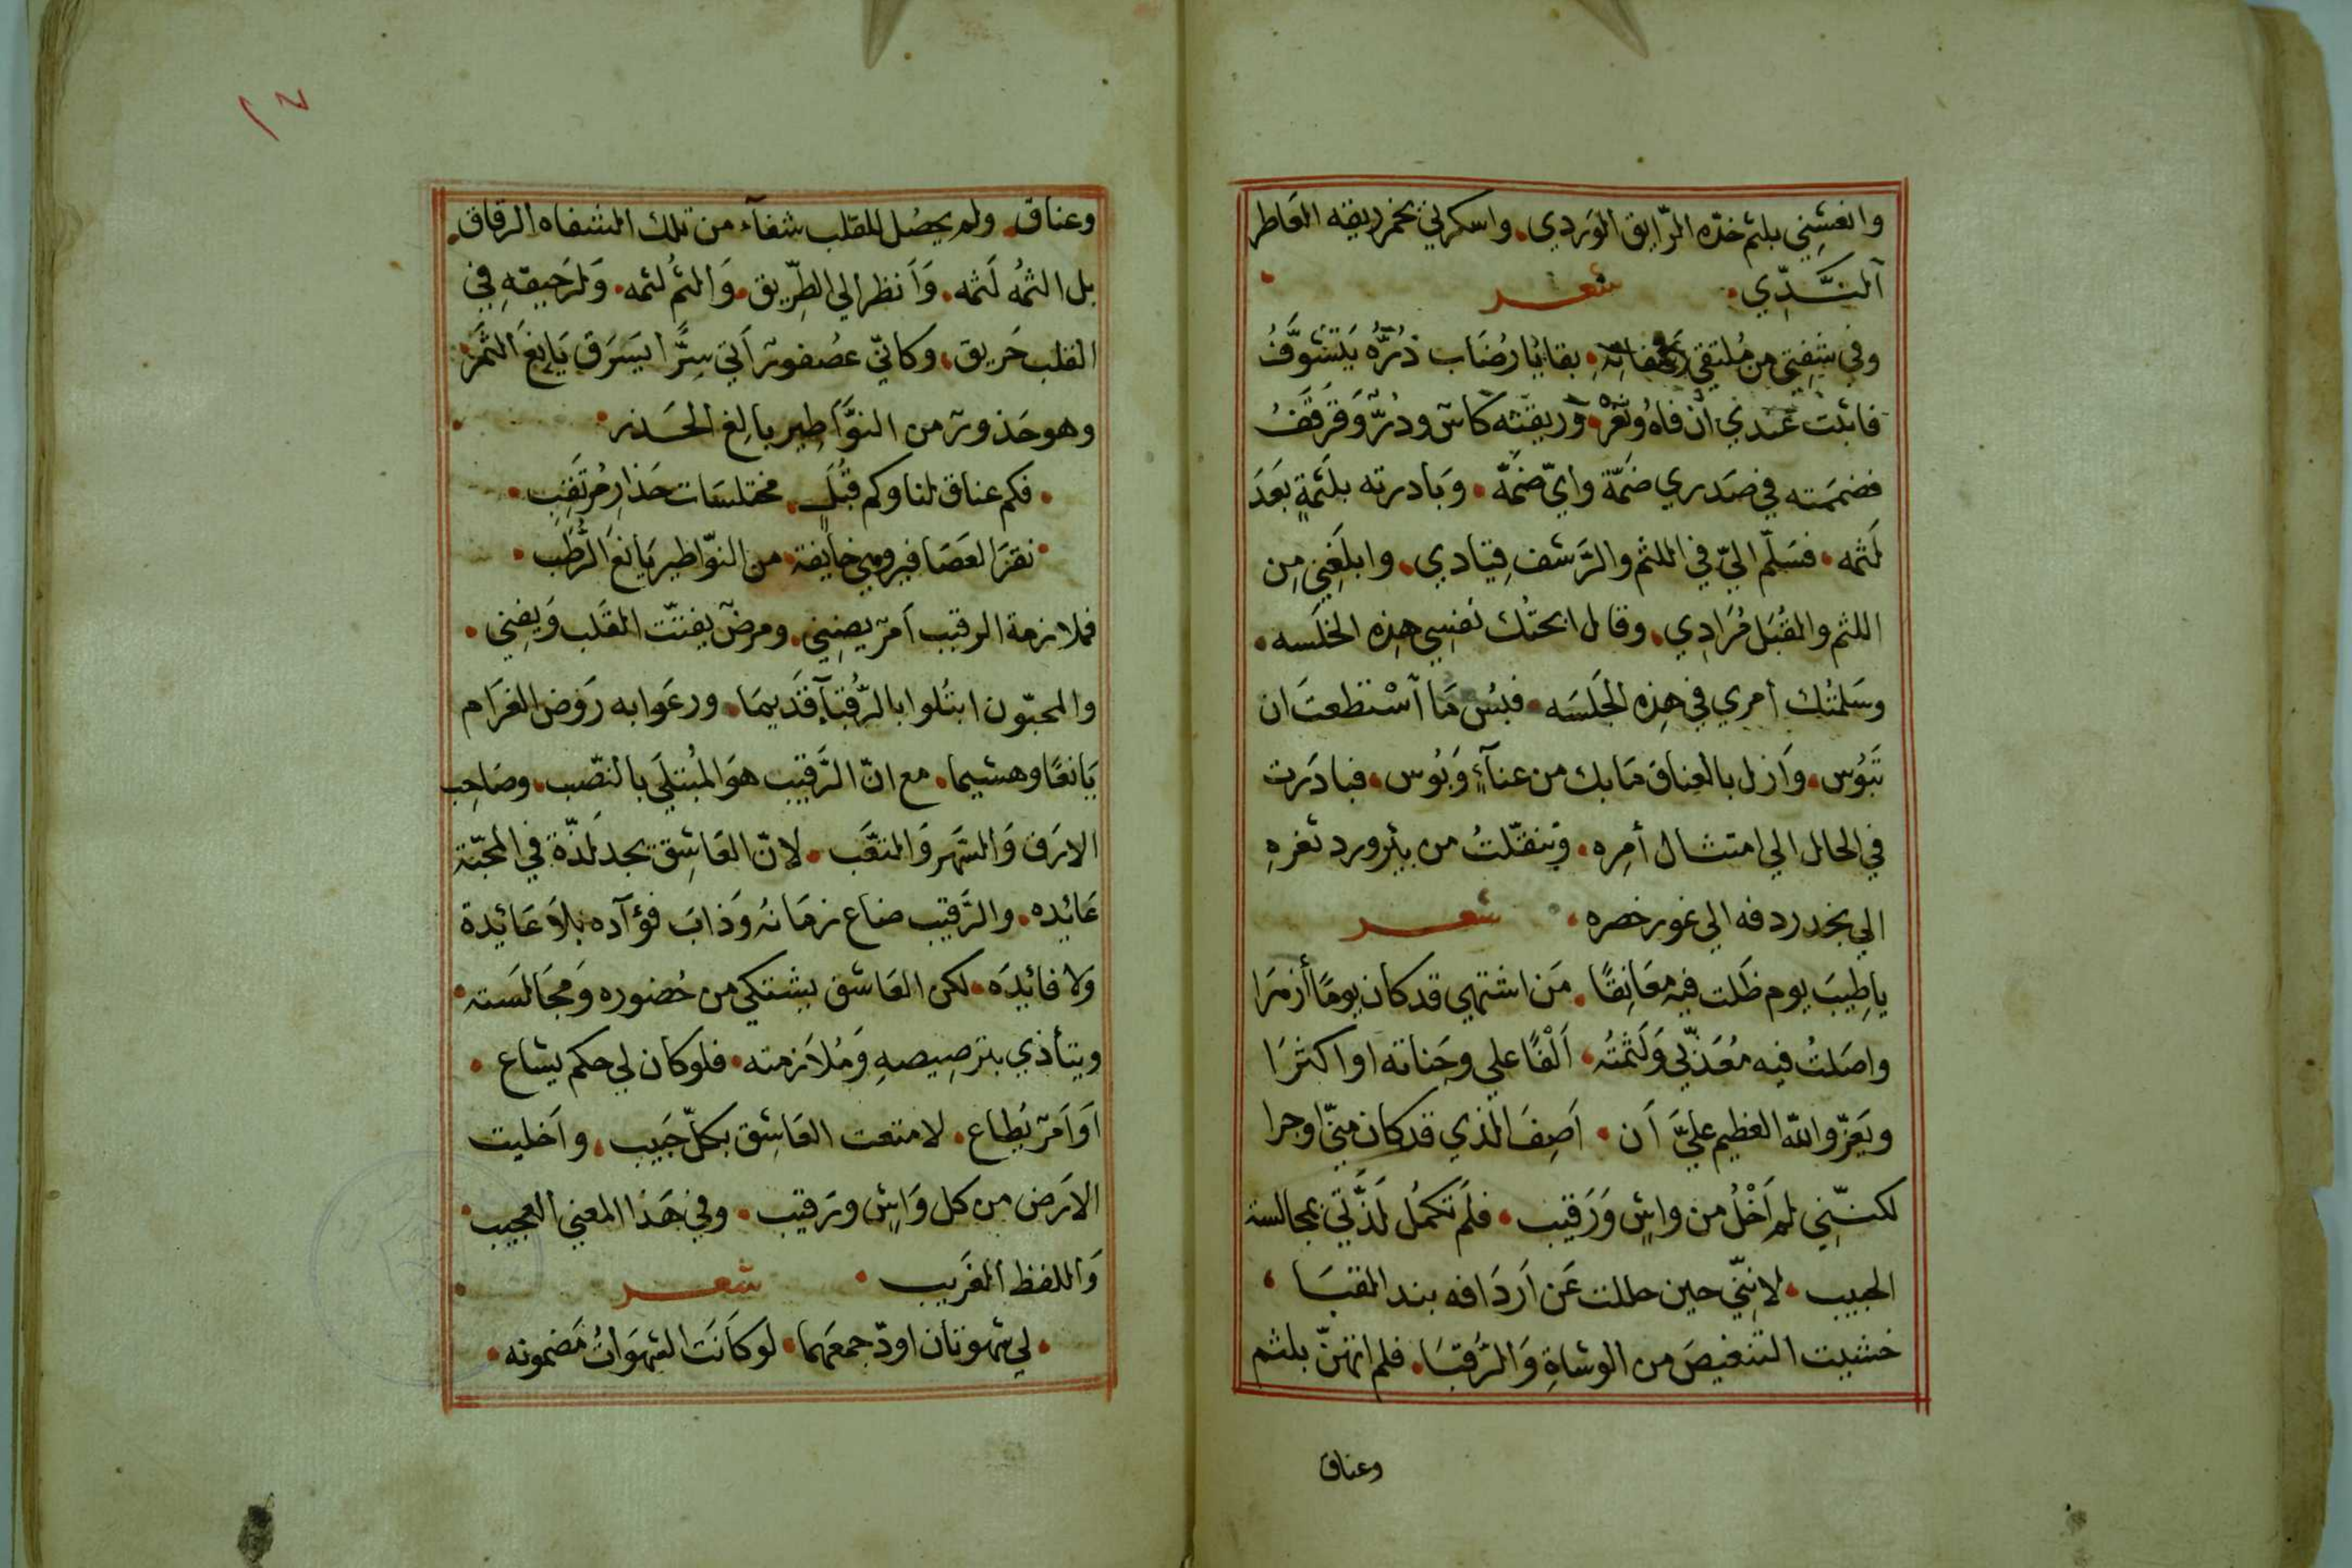 وانعشِني بلثم خدّه الرّايق الوَردي. واسكرني بخمر ريقه العَاطر
اَلنــَّدِّي. شعــر
وفي شفتي من مُلتقي رَشفاتِهِ. بقايَا رُضَاب دُرُّهُ يَتَشوَّفُ
فاثبْت عَندي أنْ فاهُ وثغْرَهُ. وَريقتَه كَاسٌ ودُرٌّ وَقَرقَفُ
فضممَته في صَدري ضمَّة وايّ ضمَّة. وبَادرته بلَثمَةٍ بَعدَ
لَثمه. فسَلّم اليّ في اللثم والرَّشف قِيَادي. وابلَغِني مِن
اللثم والقُبَل مُرَادِي. وقال ابحتُك نَفسِي هذِه الخلسَه.
وسَلمتُك أمري في هذِه الجَلسَه. فبُس مَا اَسْتطعتَ ان
تَبُوس. وَازل بالعِناق مَا بك من عنَآءٍ وَبُوس. فبادَرت
في الحال الي امتثال أمره. وَتنقّلتُ من بئر ورد ثغرهِ
الي نجد ردفه الي غور خصره. شعــر
يا طِيبَ يوم ظَلت فيهِ معَانِقًا. مَن اشتهي قد كان يومًا أزهرَا
واصَلتُ فيه مُعَذّبي وَلَثمتُه. اَلْفًا علي وجَناته او اكثرَا
ويَعَزّ واللّه العَظيم عليَّ اَن. اَصِفَ الذي قد كان منّي اوجرا
لكنــّني لم اَخْلُ من واشٍ وَرَقيب. فلَم تكمُل لَذَّتي بمجالسة
الحبيب. لانِنّي حين حللت عَن اَردَافه بند القبَا.
خشيت التنغيصَ من الوشاةِ وَالرُّقبَا. فلم اتهنّ بلثم
وعناق
١٢
وعناق. ولم يحصُل للقلب شفآء من تلك الشفاه الرقاق.
بل الثمُه لَثمه. وَاَنظر الي الطِّريق. وَاَلثمُ لثمه. وَلرَحيقهِ في
القلب حَريق. وكانّي عصُفورٌ اَتي سِرًّا ليَسَرق يَانعَ الثَمَر.
وهو حَذورٌ من النوَّاطِير بالغ الحَــذر.
. فكم عناق لنا وكم قُبَلٍ. مختلسَات حَذارِ مُرتَقِبِ.
. نقرَ العَصَافير وهي خايفة. من النوّاطير يَانعَ الرُّطَب.
فملازمة الرقيب اَمرٌ يضنِيني. ومرضٌ يفتّت القَلب وَيفِني.
والمحبّون ابتُلوا بالرُّقبَآءِ قَديمَا. ورعَوا به رَوض الغرَام
يَانعًا وهشيما. مع انّ الرَّقيب هوَ المُبتلَي بالنصّب. وصَاحِب
الارَق وَالسَّهر وَالتعَّب. لانّ العَاشِق يجد لَذّة في المحبّة
عَائده. والرَّقيب ضاع زمَانهُ وَذابَ فؤآده بلاَ عَائِدة
وَلا فائِدَه. لكن العَاشق يشتكي من حُضوره وَمجَالسَته.
ويتأذي بترصِيصهِ وَمُلاَزمته. فلو كان لي حكم يشاع.
اَو اَمرٌ يُطاع. لامتعت العَاشِق بكلّ حَبيب. واَخليت
الارَض من كل وَاشٍ ورَقيب. وفي هَذا المعني العجيب.
وَاللفظ اَلغَريب. شعــر
. لي شهوتان اودّ جمعَهما. لو كَانَت الشهَوَاتُ مَضمونه.